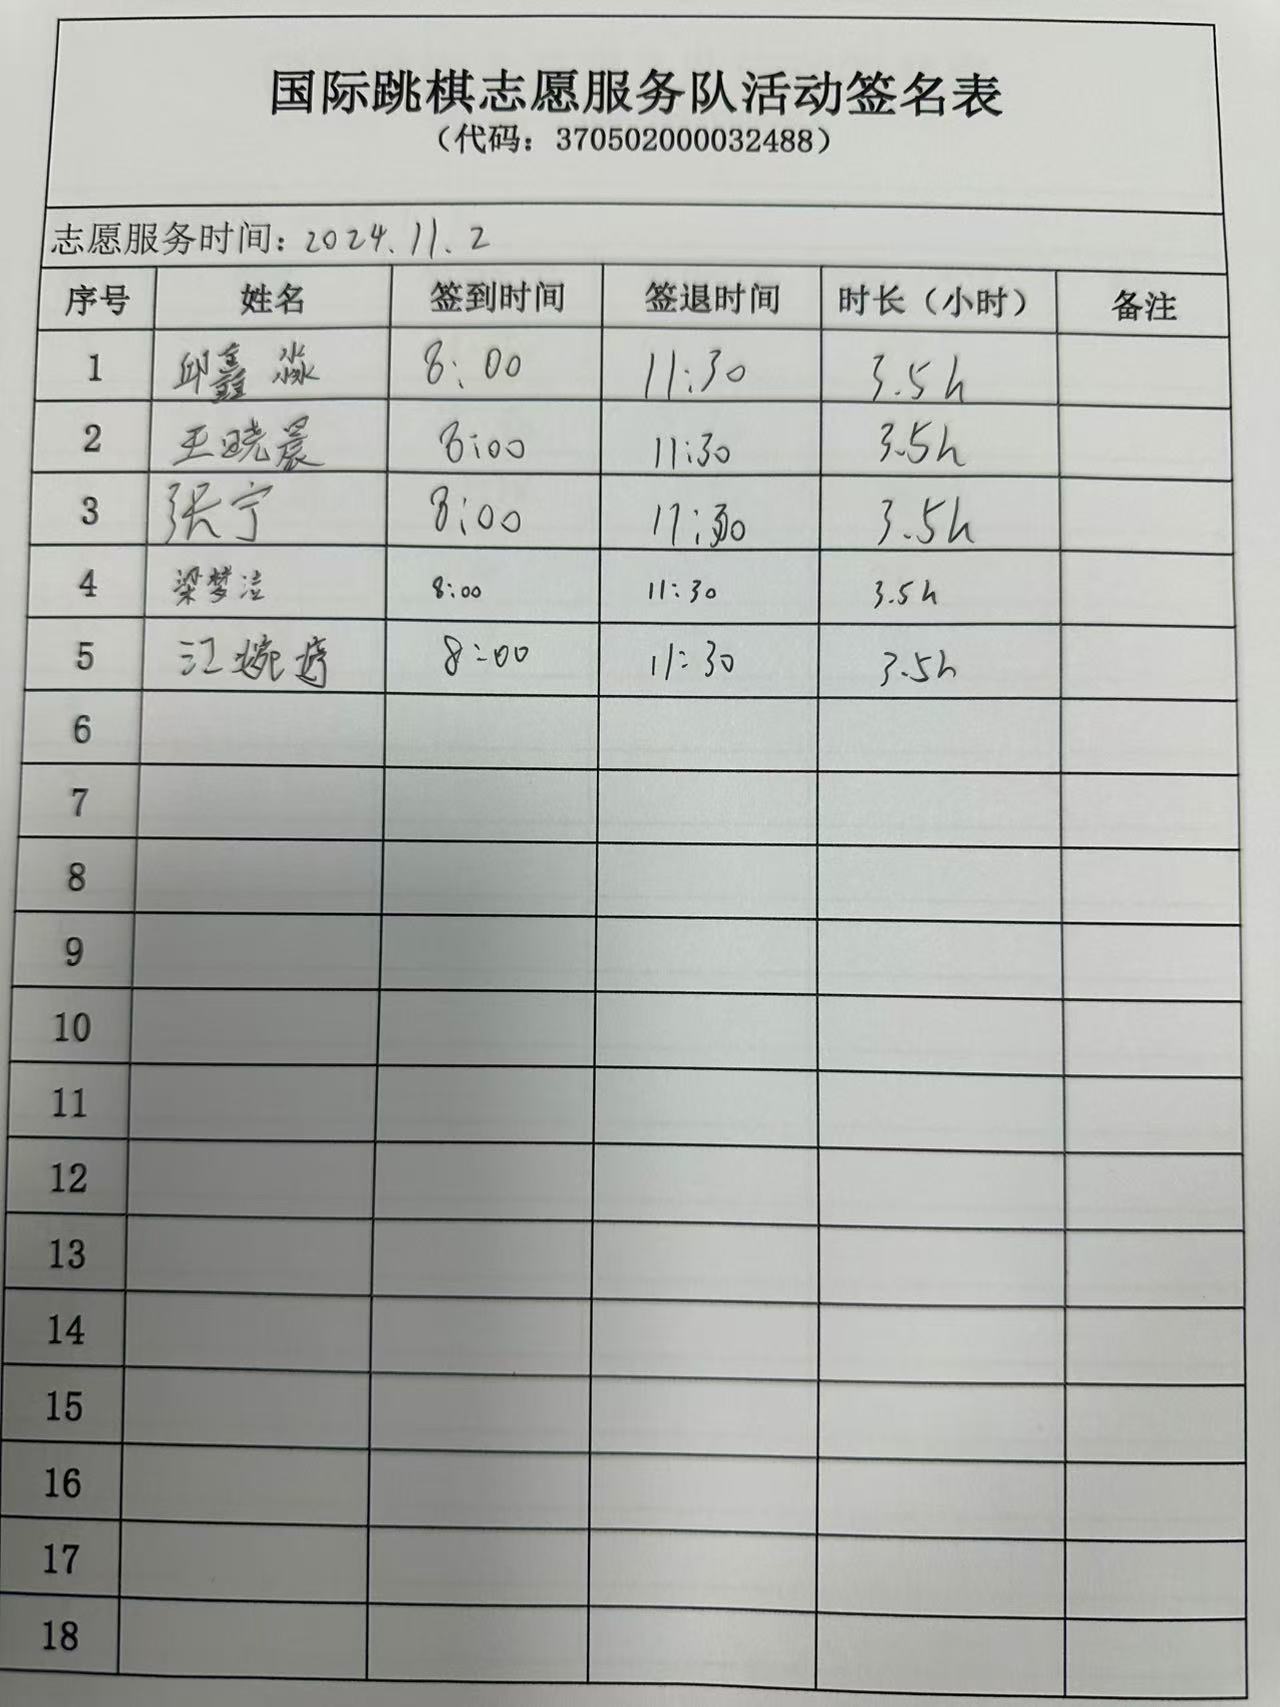 国际跳棋志愿服务队活动签名表
（代码：370502000032488）
志愿服务时间：2024.11.2
序号 姓名 签到时间 签退时间 时长（小时） 备注
1 邱鑫淼 8:00 11:30 3.5h
2 王晓晨 8:00 11:30 3.5h
3 张宁 8:00 11:30 3.5h
4 梁梦洁 8:00 11:30 3.5h
5 江婉 8:00 11:30 3.5h
6
7
8
9
10
11
12
13
14
15
16
17
18